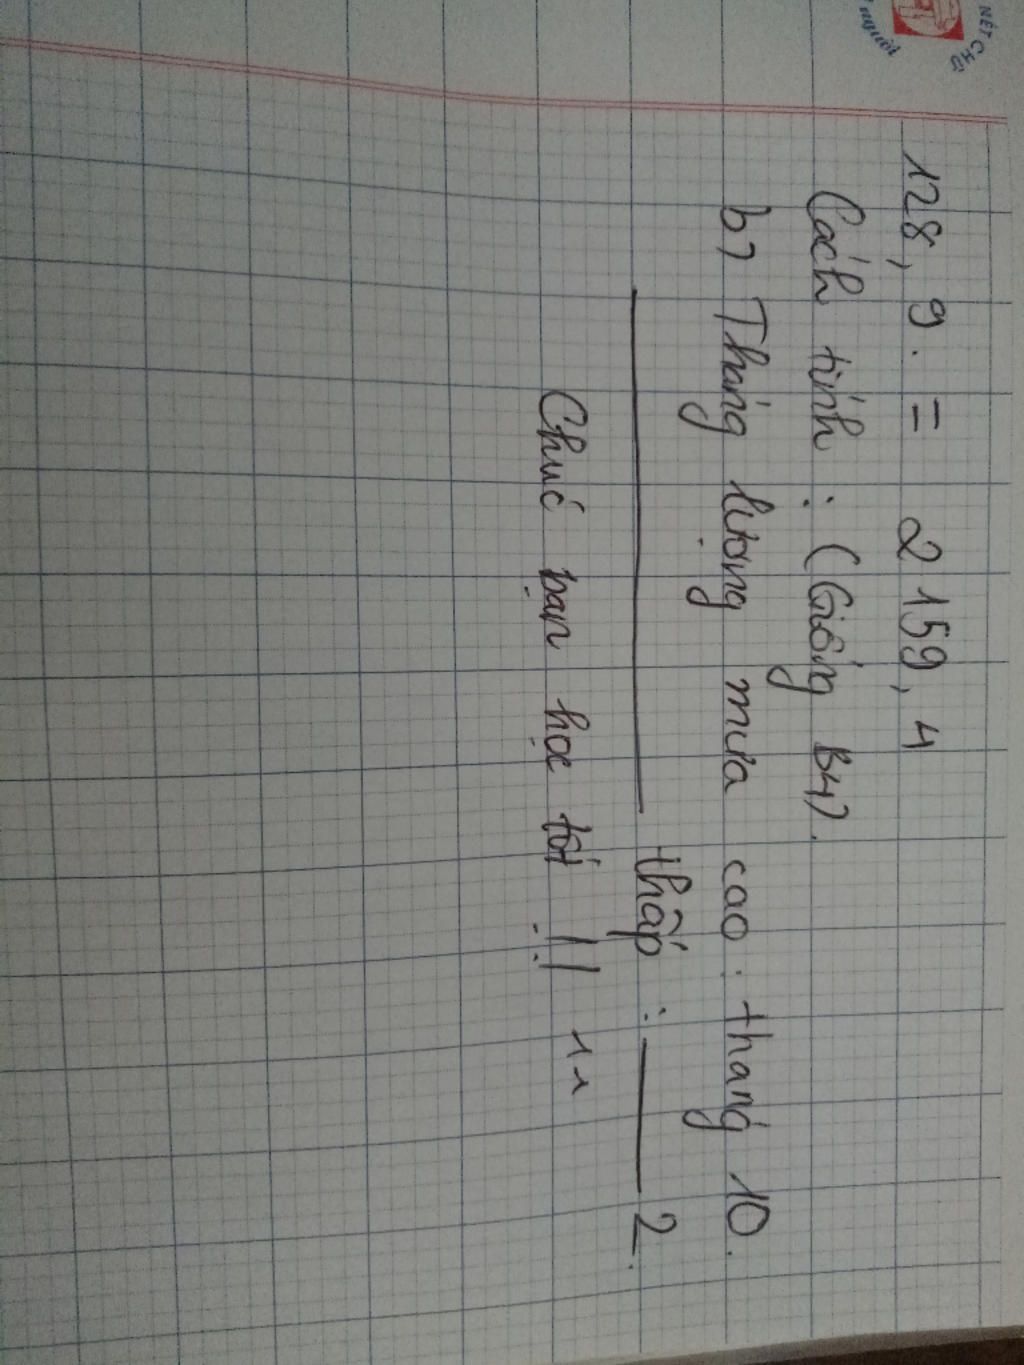 NÉT CHỮ
người
128, 9. = 2159, 4
Cách tính : (Giống B4).
b) Tháng lượng mưa cao : tháng 10.
thấp : 2.
Chúc bạn học tốt !!